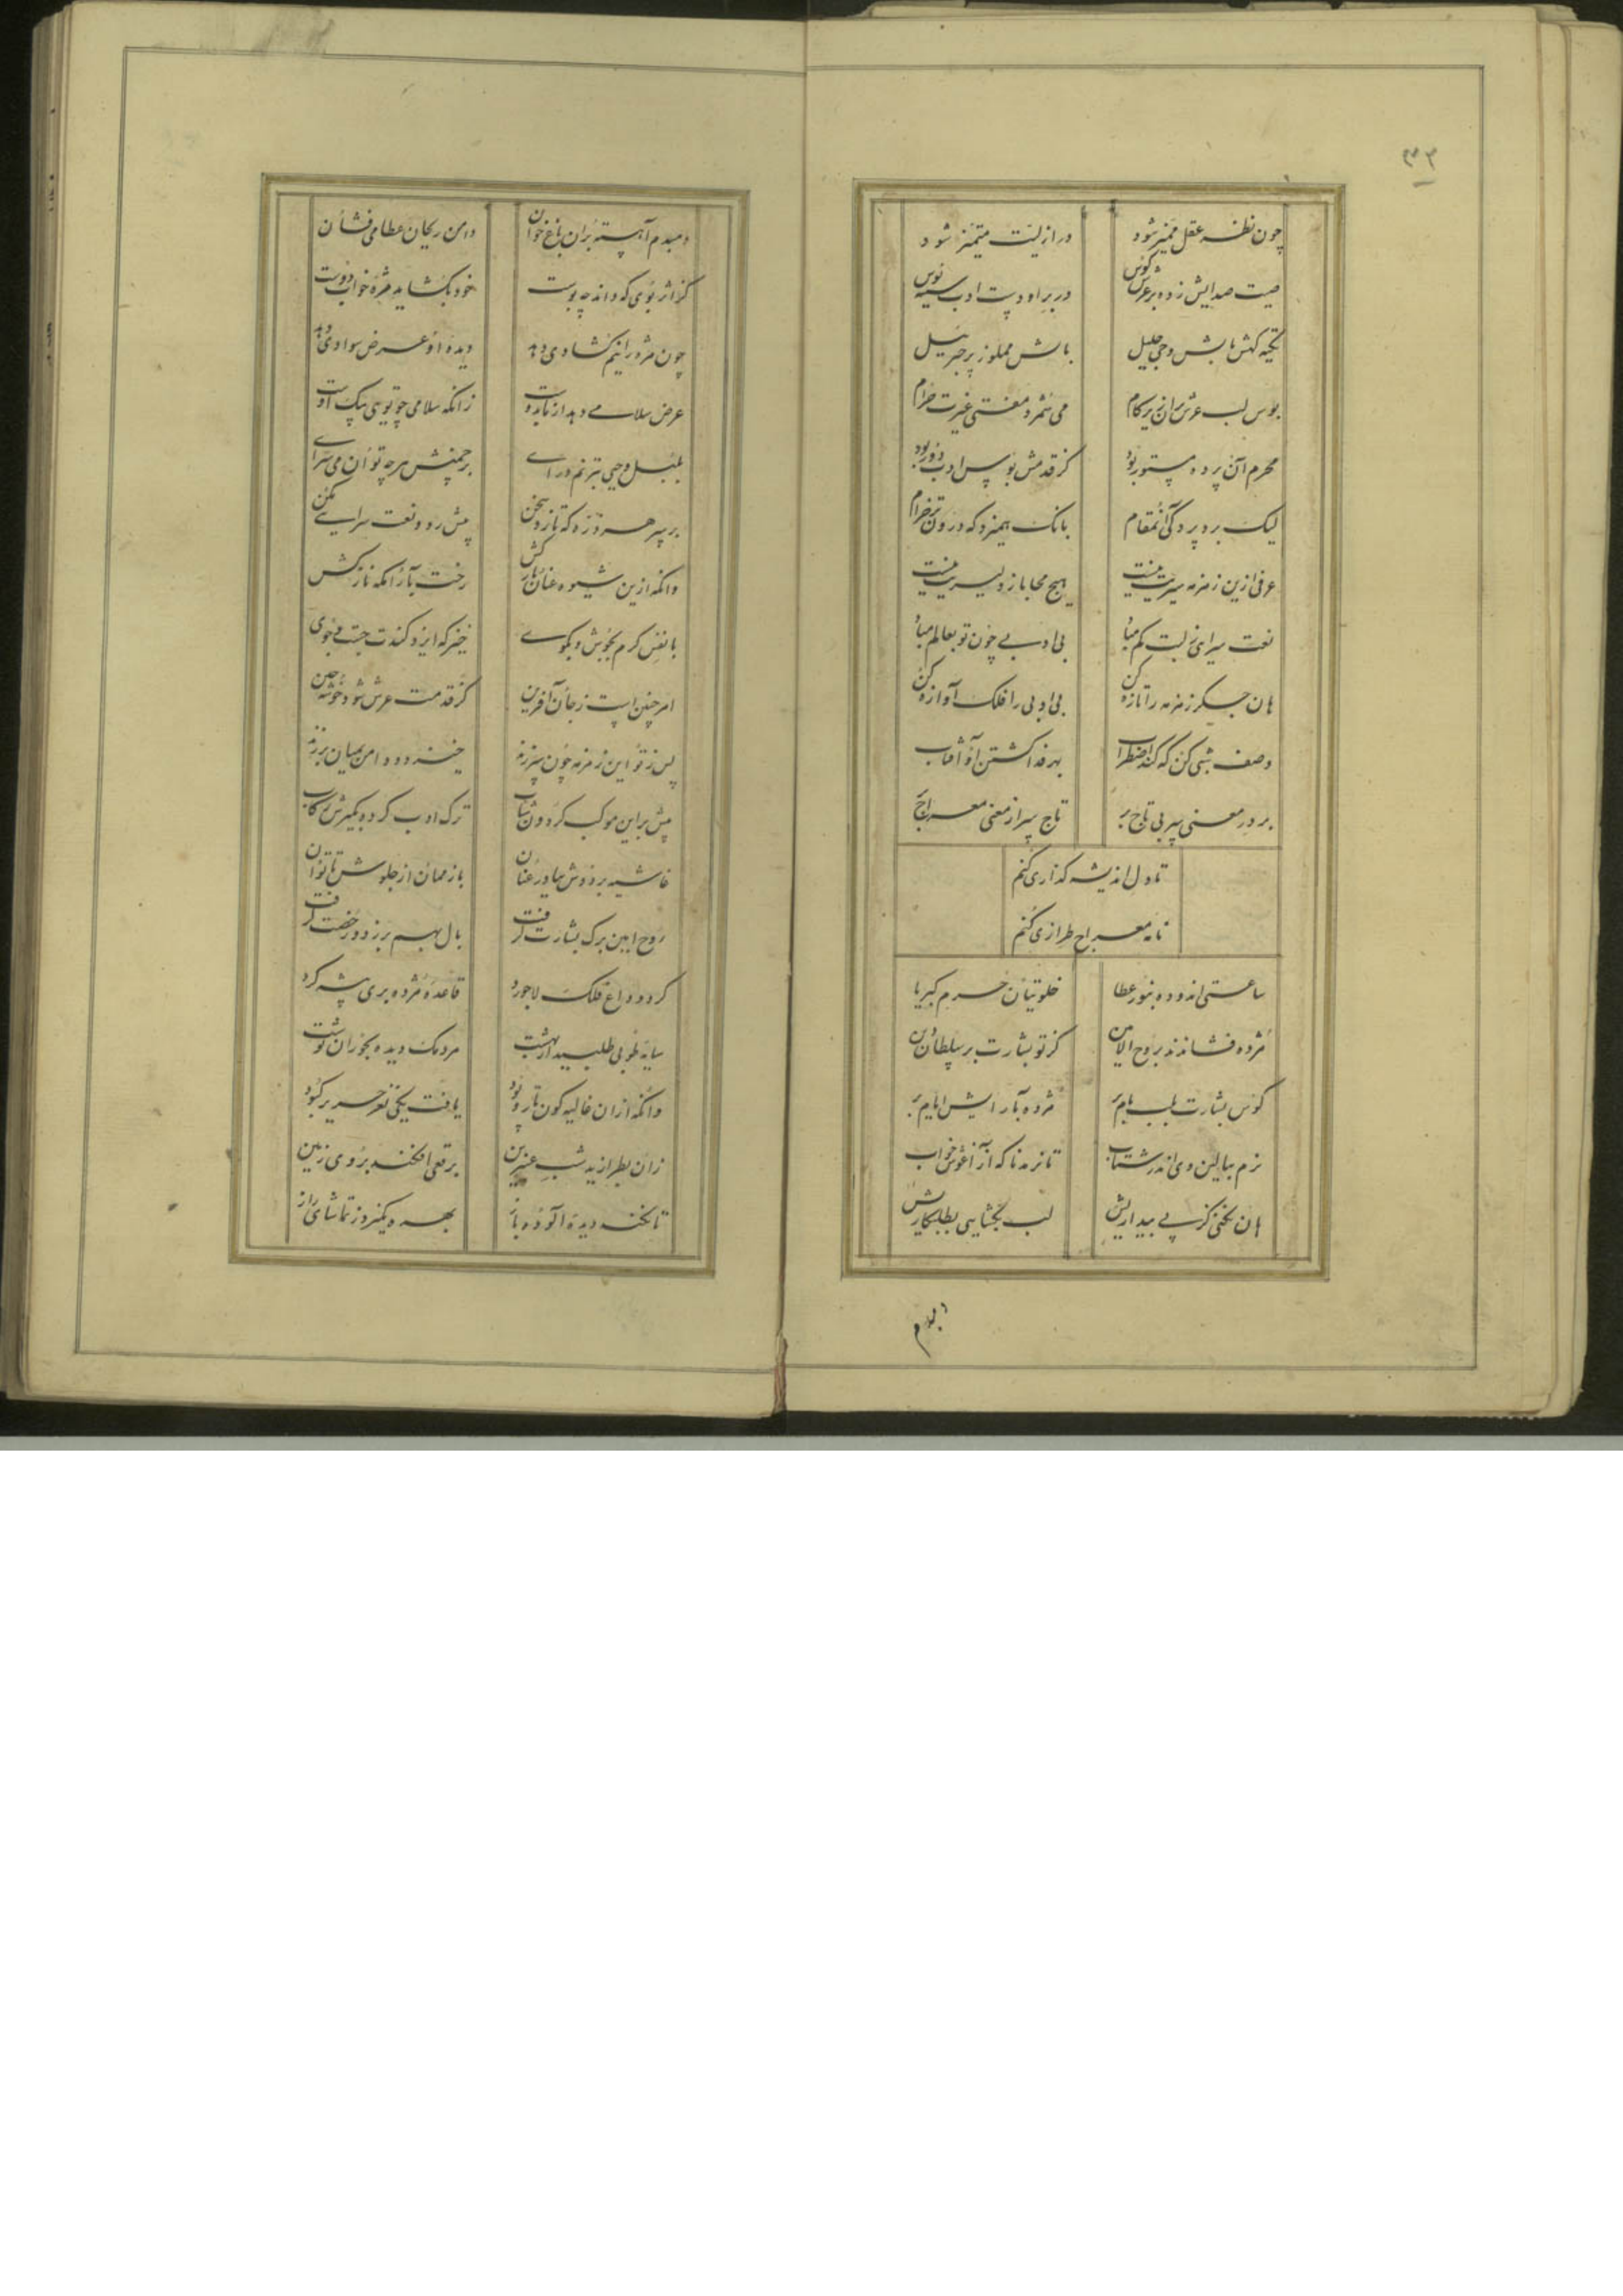 ۳۳
چون نظر عقل ممیز شود در ازلیت متمیز شود
صیت صدایش زده بر عرش کوس در بر او دست ادب سینه بوس
تکیه کهش بالش وحی جلیل بالش مملو ز پر جبرئیل
بوس لب عرش بران زیر کام می شمرد مفتی غیرت حرام
محرم آن پرده مستور بود کز قدمش بوس ادب دور بود
لیک برد پردگی آنمقام بانک همیزد که درون تر خرام
عرفی ازین زمزمه سیریت نیست هیچ محابا ز دلیریت نیست
نعت سرای ز لبت کم مباد بی ادبی چون تو بعالم مباد
هان جگر زمزمه را تازه کن بی ادبی را فلک آوازه کن
وصف شبی کن که کند اضطراب بهر فدا کشتن او آفتاب
بر در معنی سر بی تاج بر تاج سر از معنی معراج بر
تا دل اندیشه کدازی کنم
نامه معراج طرازی کنم
ساعتی اندوده بنور عطا خلوتیان حرم کبریا
مژده فشاندند بروح الامین کز تو بشارت بر سلطان دین
کوس بشارت بلب بام بر مژده بآرایش ایام بر
نرم ببالین وی اندر شتاب تا نرمد ناکه از آغوش خواب
هان نخفی کز پی بیداریش لب بکشایی بطلبکاریش
دمبدم
دمبدم آهسته بران باغ خوان دامن ریحان عطا می فشان
کز اثر بوی که داند چه بوست خود بکشاید مژه خواب دوست
چون مژه را نیم کشادی دهد دیده او عرض سوادی دهد
عرض سلامی دهد از ما بدوست زانکه سلامی چو تویی پیک اوست
بلبل وحیی بترنم درای بر چمنش هرچه توان می سرای
بر سر هر ذره که تازد سخن پیش رو و نعت سرایی بکن
وانکه ازین شیوه عنان باز کش رخت بآرامکه ناز کش
با نفس کرم بجوش و بکوی خیز که ایزد کندت جست و جوی
امر چنین است ز جان آفرین کز قدمت عرش شود خوشه چین
پس ز تو این زمزمه چون سر زند خیزد و دامن بمیان بر زند
پیش بر این موکب کردون شتاب ترک ادب کرده بکیرش رکاب
غاشیه بر دوش بیا در عنان باز ممان از جلوش تا توان
روح امین برک بشارت کرفت بال بهم بر زد و رخصت کرفت
کرد وداع فلک لاجورد قاعده مژده بری پیشه کرد
سایه طوبی طلبید از بهشت مردمک دیده بحوران نوشت
وانکه ازان غالیه کون تار و پود یافت یکی نغز حریر کبود
زان بطرازید شب عنبرین برقعی افکند بروی زمین
تا نکند دیده آلوده باز بهره دیکر ز تماشای راز